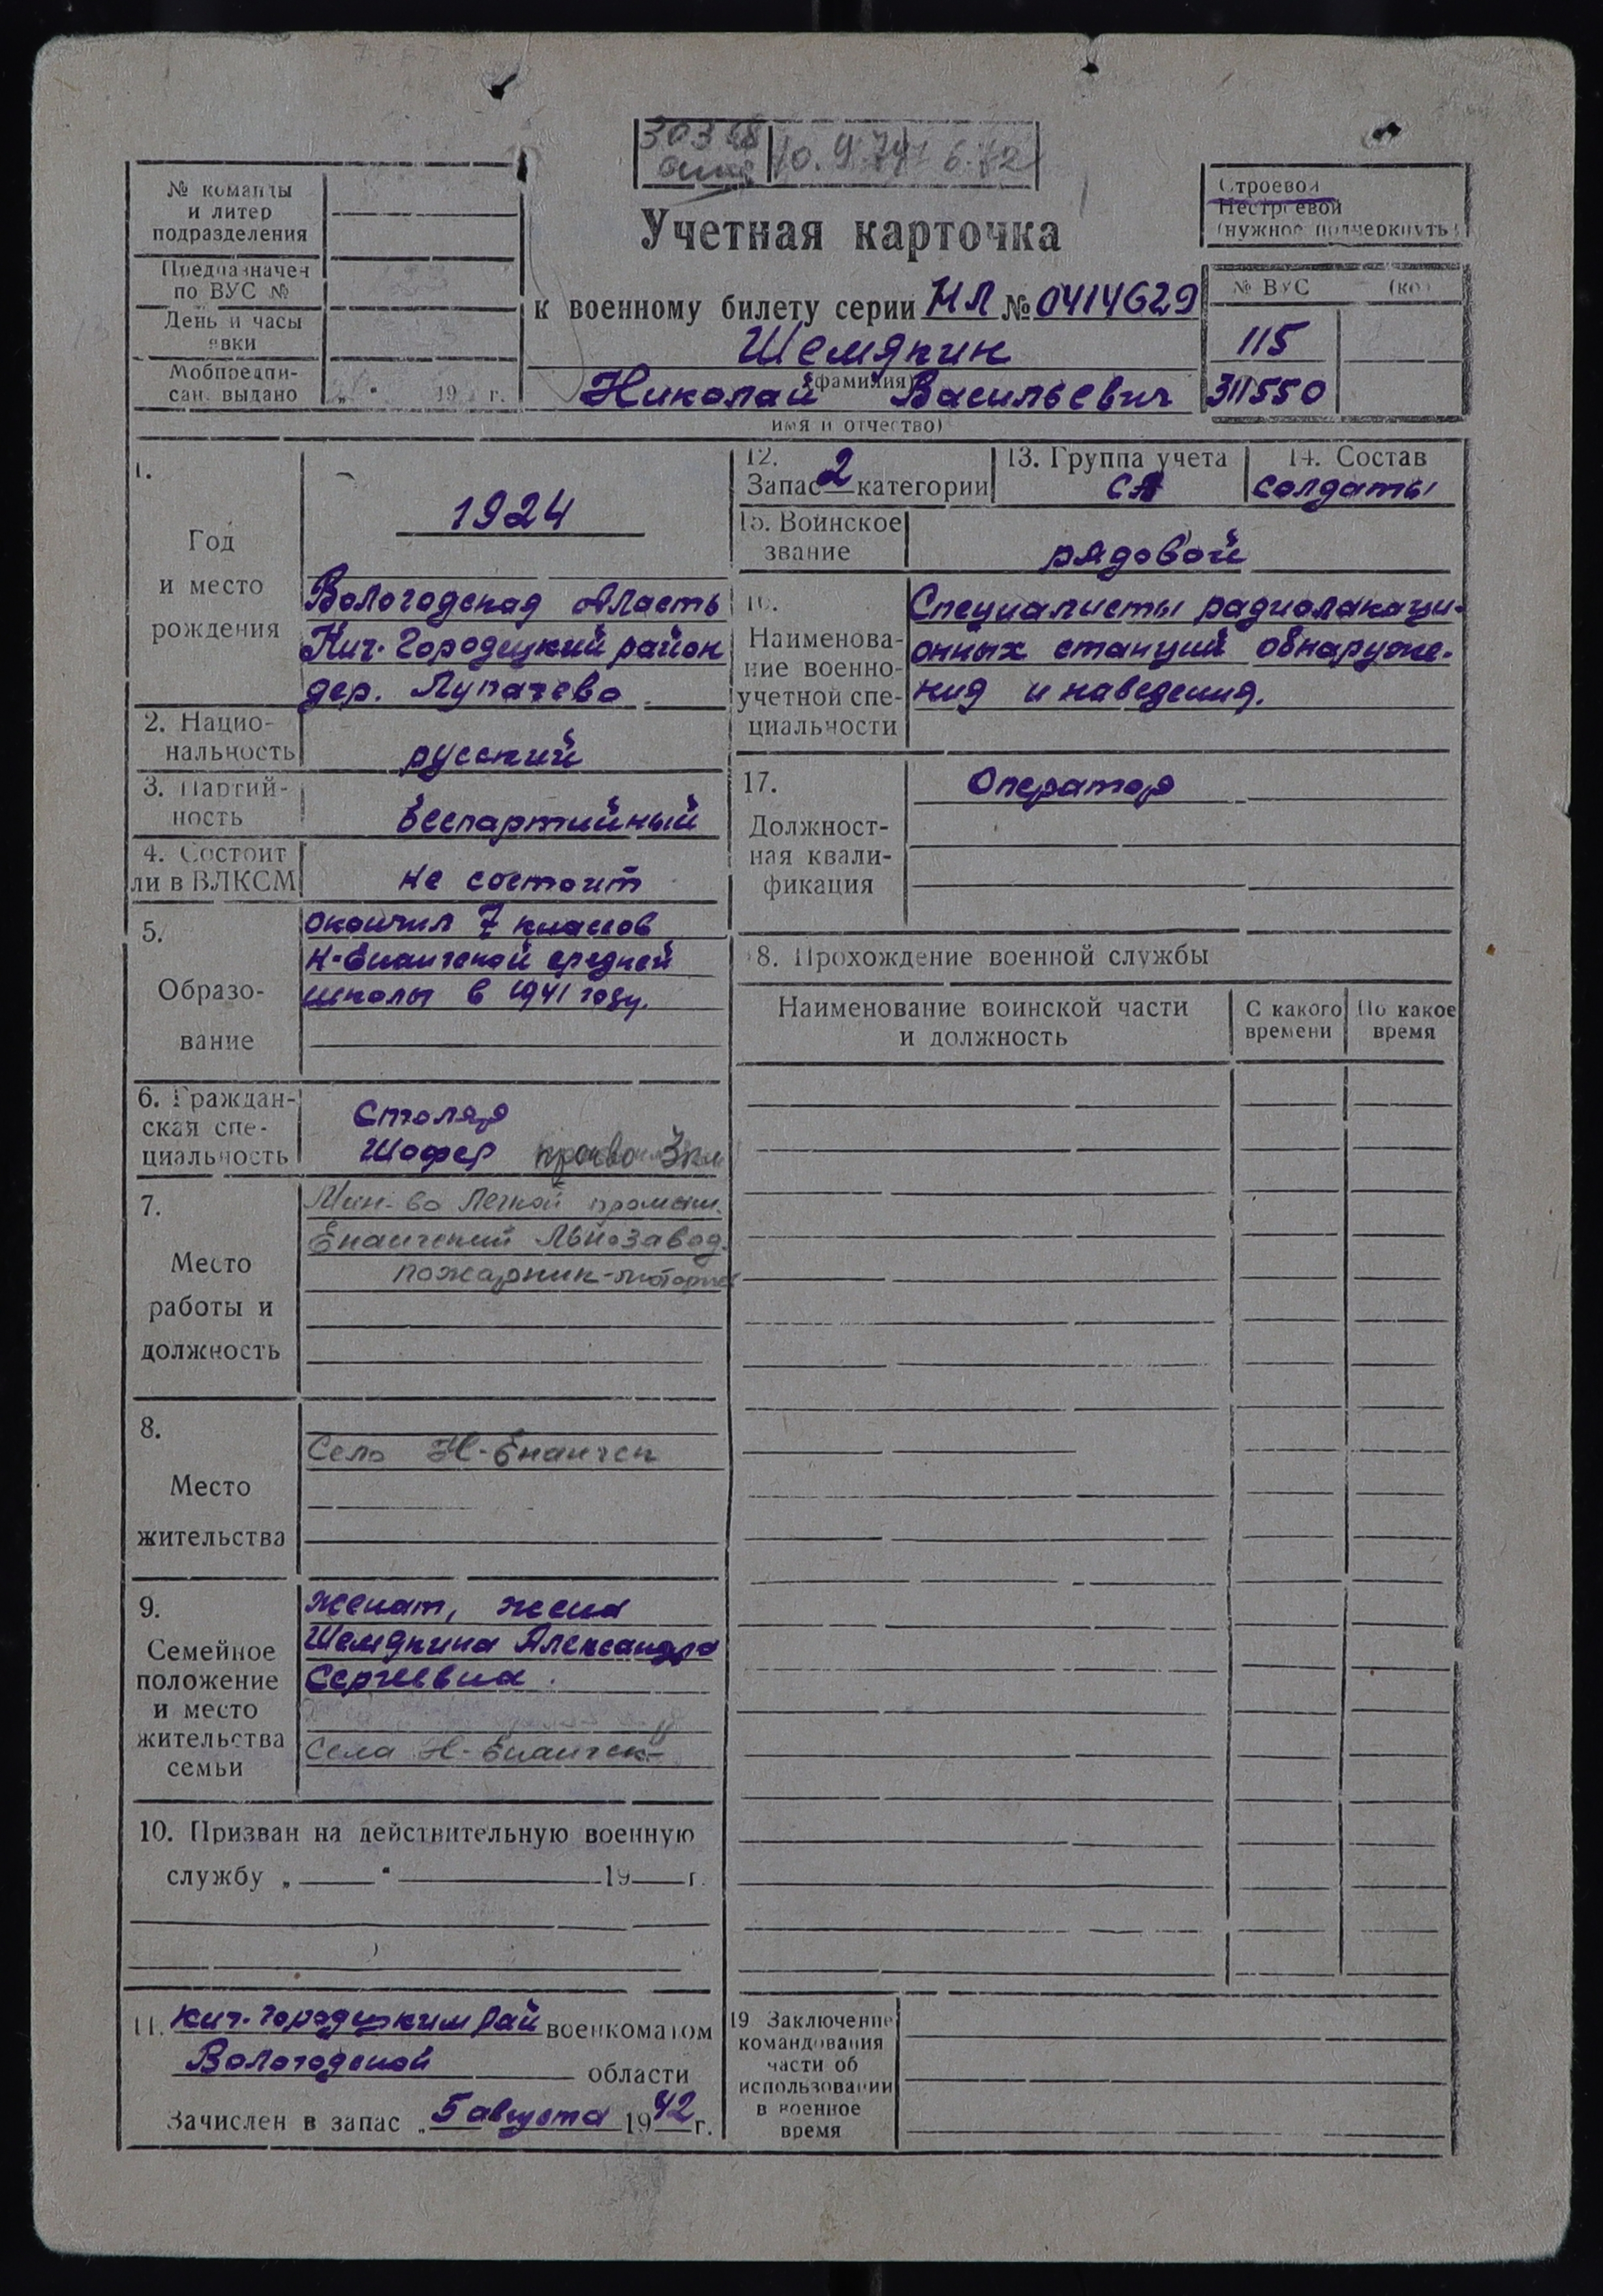 10. 9. 74
№ команды
и литер
подразделения
Предназначен
по ВУС №
День и часы
явки
Мобпредпи-
сан. выдано „ “ 19 г.
Учетная карточка
к военному билету серии НЛ № 0414629
Шемякин
(фамилия)
Николай Васильевич
имя и отчество)
Строевой
Нестроевой
(нужное подчеркнуть)
№ ВУС (код)
115
311550
1.
Год
и место
рождения
1924
Вологодская область
Кич. Городецкий район
дер. Лупачево
2. Нацио-
нальность
русский
3. Партий-
ность
беспартийный
4. Состоит
ли в ВЛКСМ
не состоит
5.
Образо-
вание
окончил 7 классов
Н-Енангской средней
школы в 1941 году.
6. Граждан-
ская спе-
циальность
Столяр
Шофер 3 кл
7.
Место
работы и
должность
Мин-во Легкой промыш.
Енангский Льнозавод.
пожарник-моторист
8.
Место
жительства
Село Н-Енангск
9.
Семейное
положение
и место
жительства
семьи
женат, жена
Шемякина Александра
Сергеевна.
Села Н-Енангск
10. Призван на действительную военную
службу „ “ 19 г.
11. Кич. Городецким Рай военкоматом
Вологодской области
Зачислен в запас „ 5 августа 1942 г.
12.
Запас 2 категории
13. Группа учета
СА
14. Состав
солдаты
15. Воинское
звание
рядовой
16.
Наименова-
ние военно-
учетной спе-
циальности
Специалисты радиолокаци-
онных станций обнаруже-
ния и наведения.
17.
Должност-
ная квали-
фикация
Оператор
18. Прохождение военной службы
Наименование воинской части
и должность
С какого
времени
По какое
время
19. Заключение
командования
части об
использовании
в военное
время